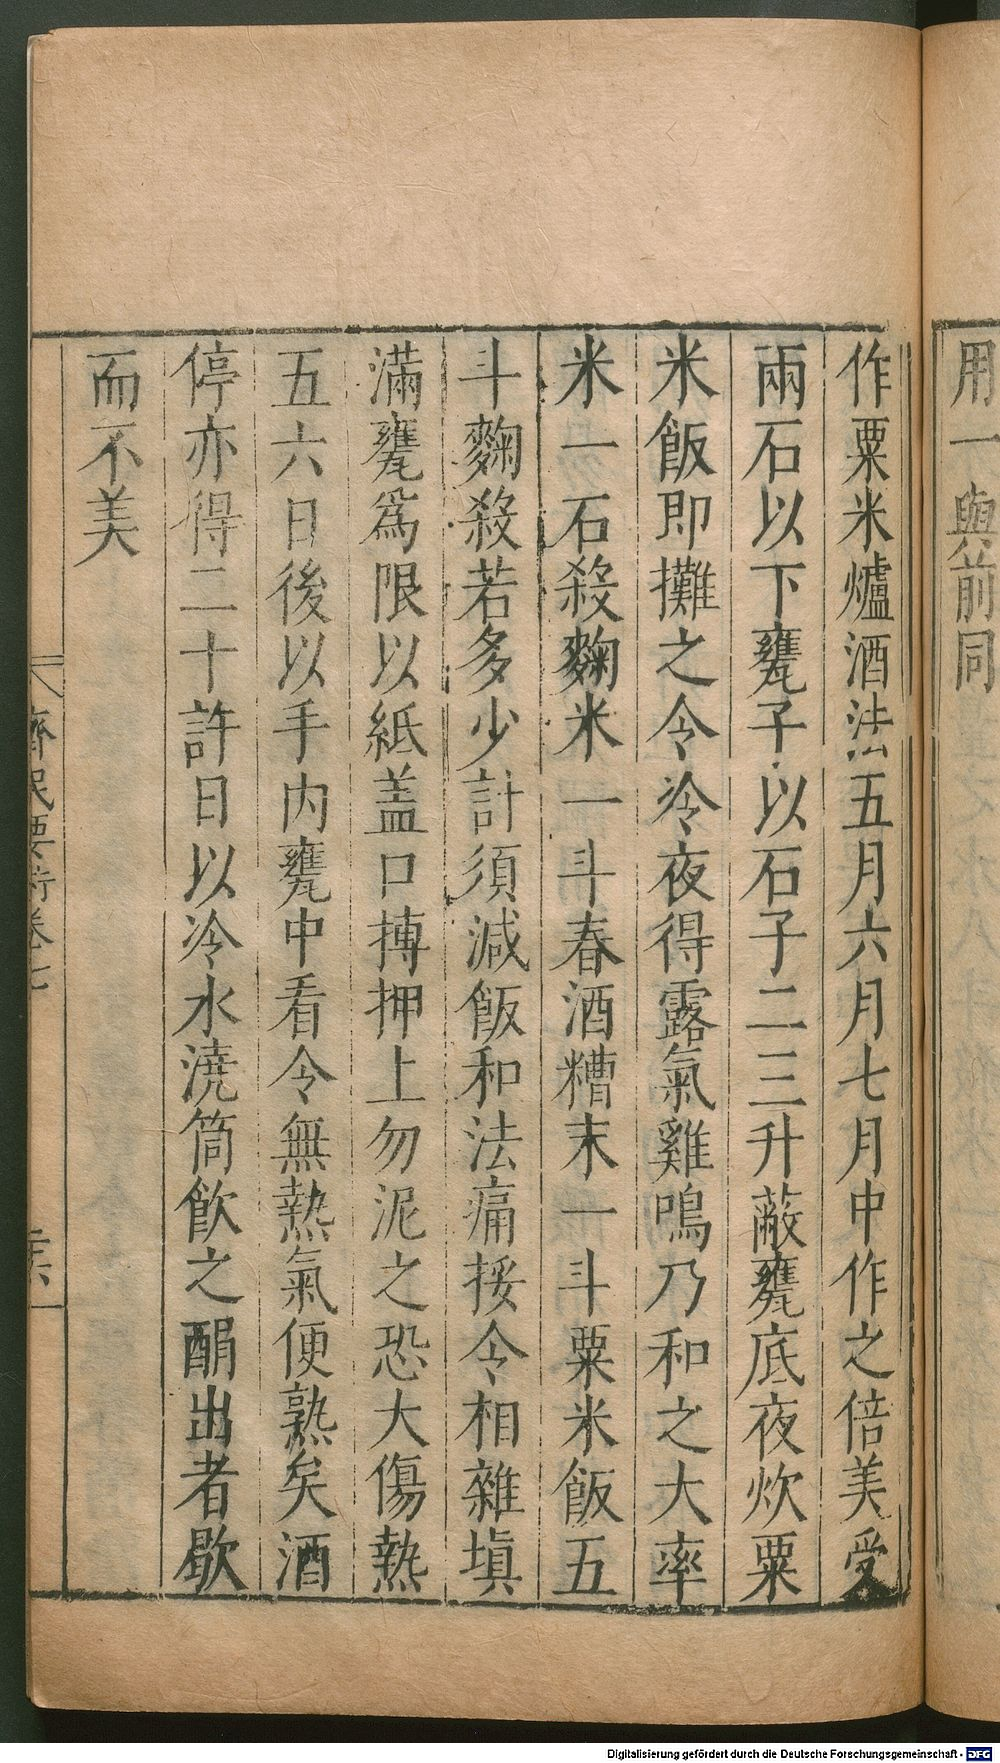 用一與前同
作粟米爐酒法五月六月七月中作之倍美受
兩石以下甕子以石子二三升蔽甕底夜炊粟
米飯即攤之令冷夜得露氣雞鳴乃和之大率
米一石殺麴米一斗春酒糟末一斗粟米飯五
斗麴殺若多少計須減飯和法痛挼令相雜塡
滿甕爲限以紙盖口摶押上勿泥之恐大傷熱
五六日後以手內甕中看令無熱氣便熟矣酒
停亦得二十許日以冷水澆筒飮之酳出者歇
而不美
齊民要術卷七
Digitalisierung gefördert durch die Deutsche Forschungsgemeinschaft - DFG